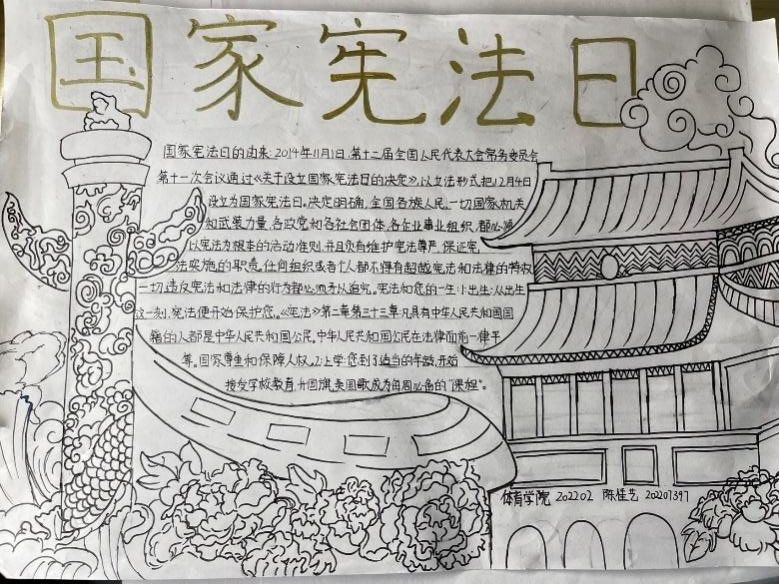 国家宪法日
国家宪法日的由来:2014年11月1日.第十二届全国人民代表大会常务委员会
第十一次会议通过《关于设立国家宪法日的决定》,以立法形式把12月4日
设立为国家宪法日。决定明确,全国各族人民、一切国家机关
和武装力量、各政党和各社会团体、各企业事业组织,都必须
以宪法为根本的活动准则,并且负有维护宪法尊严、保证宪
法实施的职责,任何组织或者个人都不得有超越宪法和法律的特权
一切违反宪法和法律的行为都必须予以追究。宪法和您的一生:1.出生:从出生
这一刻,宪法便开始保护您。《宪法》第二章第三十三章:凡具有中华人民共和国国
籍的人都是中华人民共和国公民,中华人民共和国公民在法律面前一律平
等。国家尊重和保障人权。2.上学:您到了适当的年龄,开始
接受学校教育,升国旗,奏国歌成为每周必备的"课程"。
体育学院 202202 陈佳艺 202207397